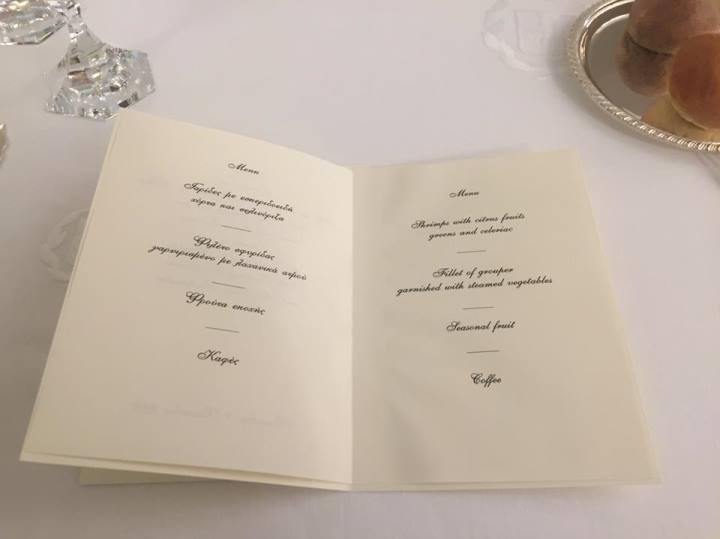 Menu
Γαρίδες με εσπεριδοειδή
χόρτα και σελινόριζα
Φιλέτο σφυρίδας
γαρνιρισμένο με λαχανικά ατμού
Φρούτα εποχής
Καφές
Menu
Shrimps with citrus fruits
greens and celeriac
Fillet of grouper
garnished with steamed vegetables
Seasonal fruit
Coffee